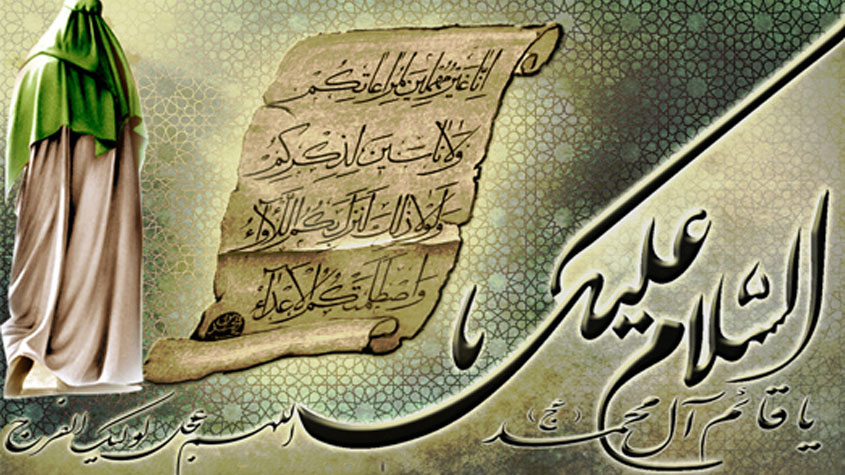 انا غیر مهملین لمراعاتکم
ولا ناسین لذکرکم
ولولا ذلک لنزل بکم اللأواء
واصطلمتکم الاعداء
السّلام علیک یا
یا قائم آل محمد (عج)
اللهم عجل لولیک الفرج